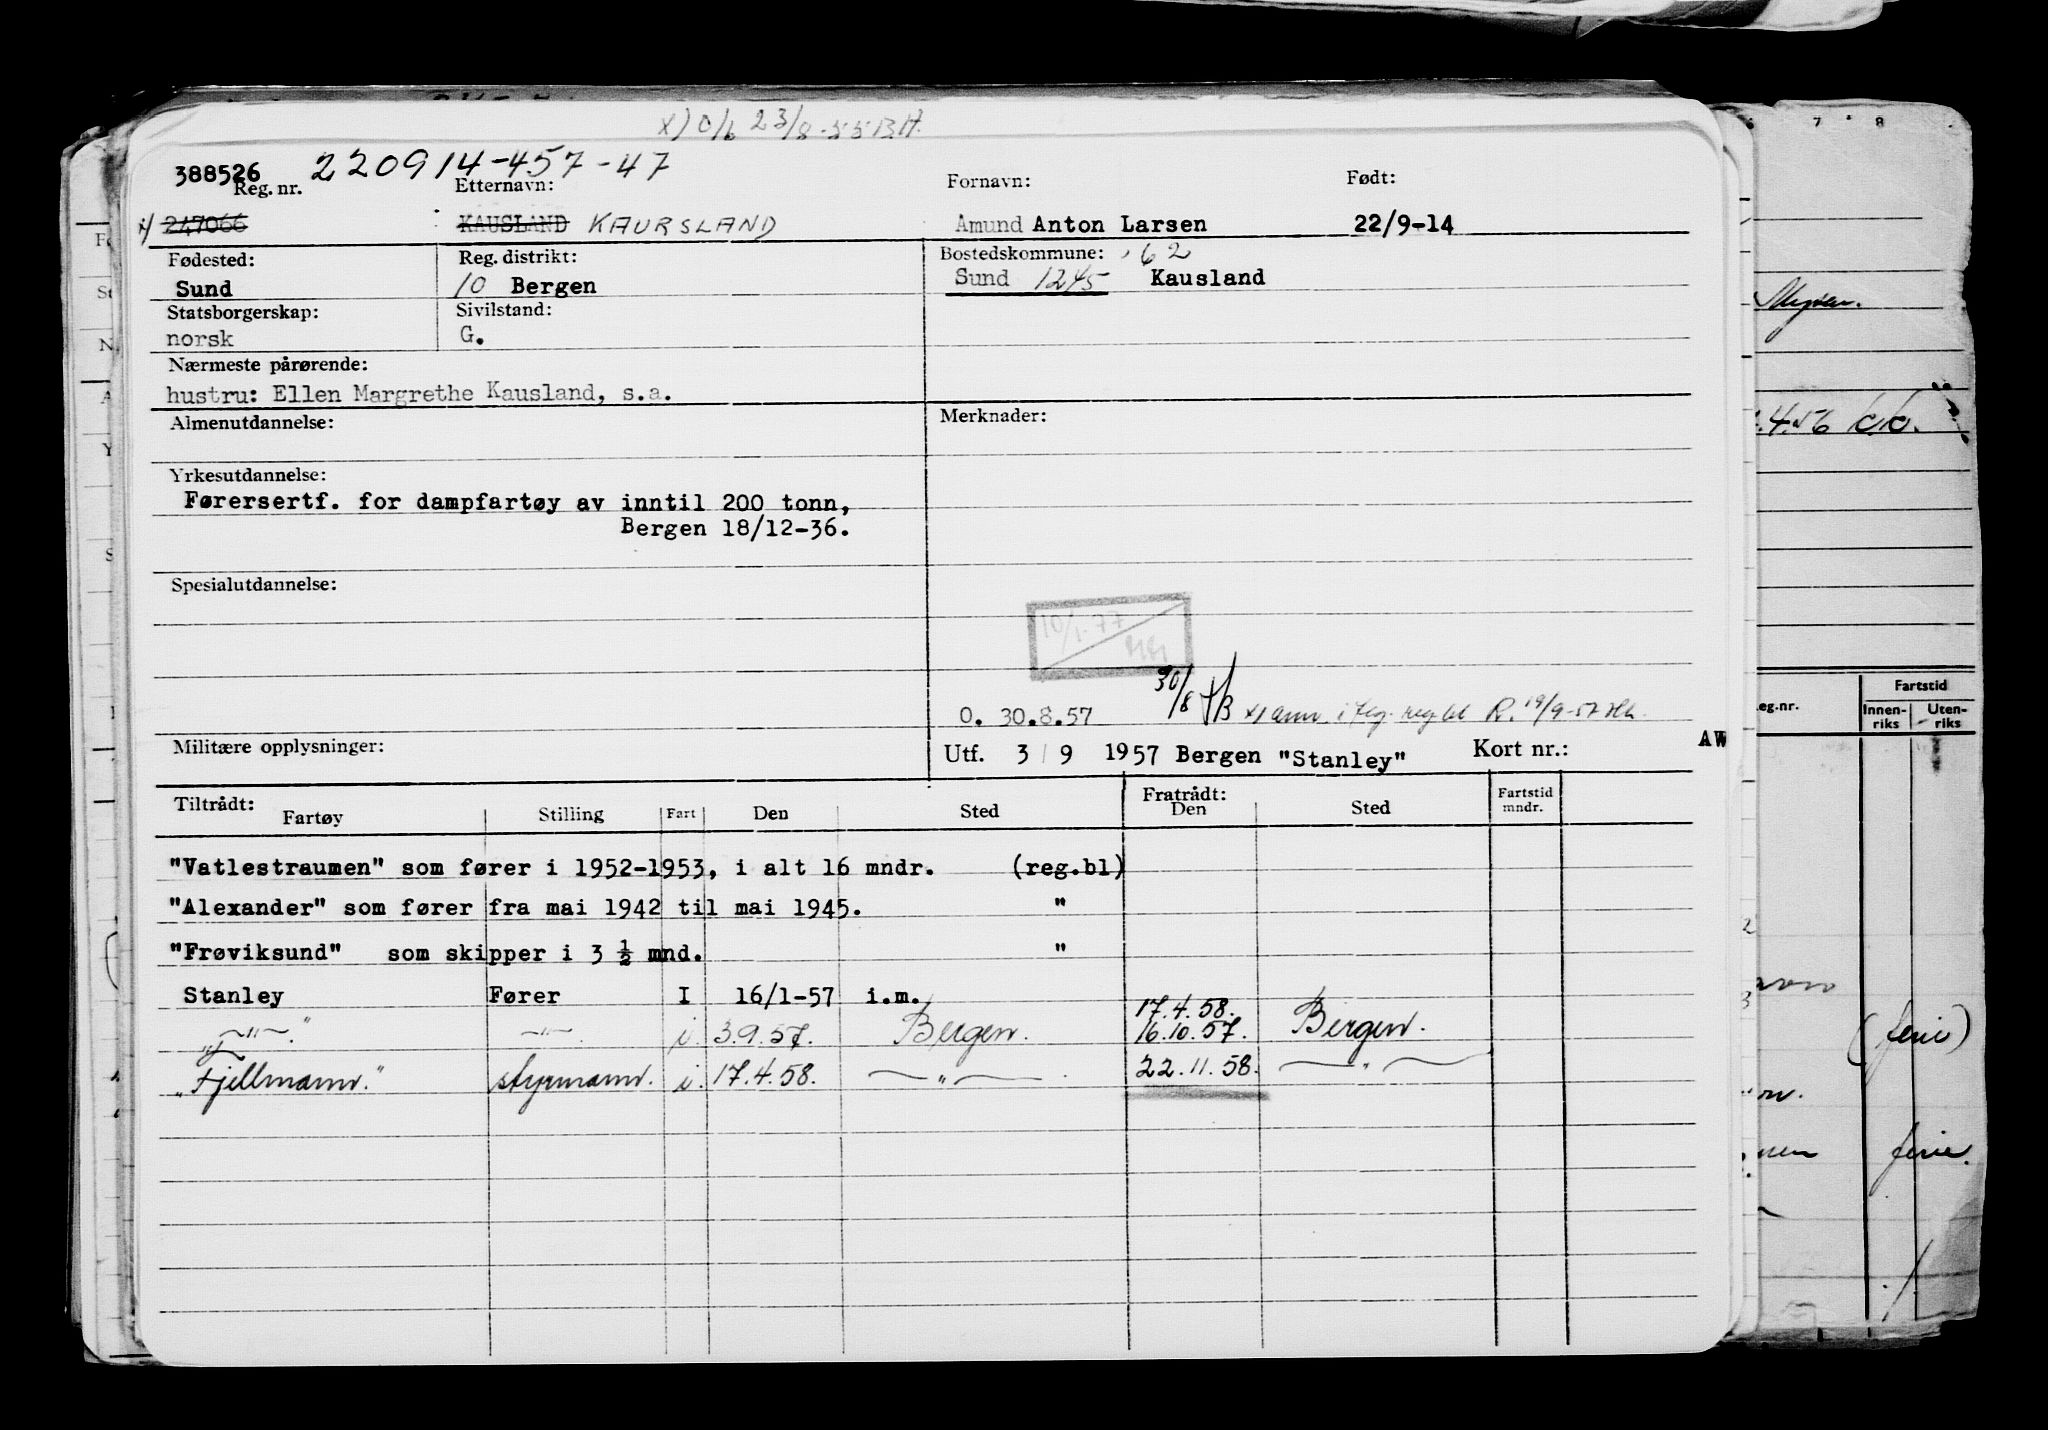 x) O/b 23/8-55 BH.
388526 220914-457-47
Reg. nr. Etternavn: Fornavn: Født:
x) 247066 KAUSLAND KAURSLAND Amund Anton Larsen 22/9-14
Fødested: Reg. distrikt: Bostedskommune: '62
Sund 10 Bergen Sund 1245 Kausland
Statsborgerskap: Sivilstand:
norsk G.
Nærmeste pårørende:
hustru: Ellen Margrethe Kausland, s.a.
Almenutdannelse: Merknader:
Yrkesutdannelse:
Førersertf. for dampfartøy av inntil 200 tonn,
Bergen 18/12-36.
Spesialutdannelse:
10/1.77
O. 30.8.57 30/8 x) anm. i flg. reg bl R. 19/9-57
Militære opplysninger: Utf. 3/9 1957 Bergen "Stanley" Kort nr.: AW
Tiltrådt: Fratrådt: Fartstid
Fartøy Stilling Fart Den Sted Den Sted mndr.
"Vatlestraumen" som fører i 1952-1953, i alt 16 mndr. (reg.bl)
"Alexander" som fører fra mai 1942 til mai 1945. "
"Frøviksund" som skipper i 3 ½ mnd. "
Stanley Fører I 16/1-57 i.m. 17.4.58.
" " i. 3.9.57. Bergen. 16.10.57. Bergen.
"Fjellmann." styrmann. i. 17.4.58. " 22.11.58. "
7 8
Mysen.
.4.56
Fartstid
eg.nr. Innen- Uten-
riks riks
(ferie)
ferie.